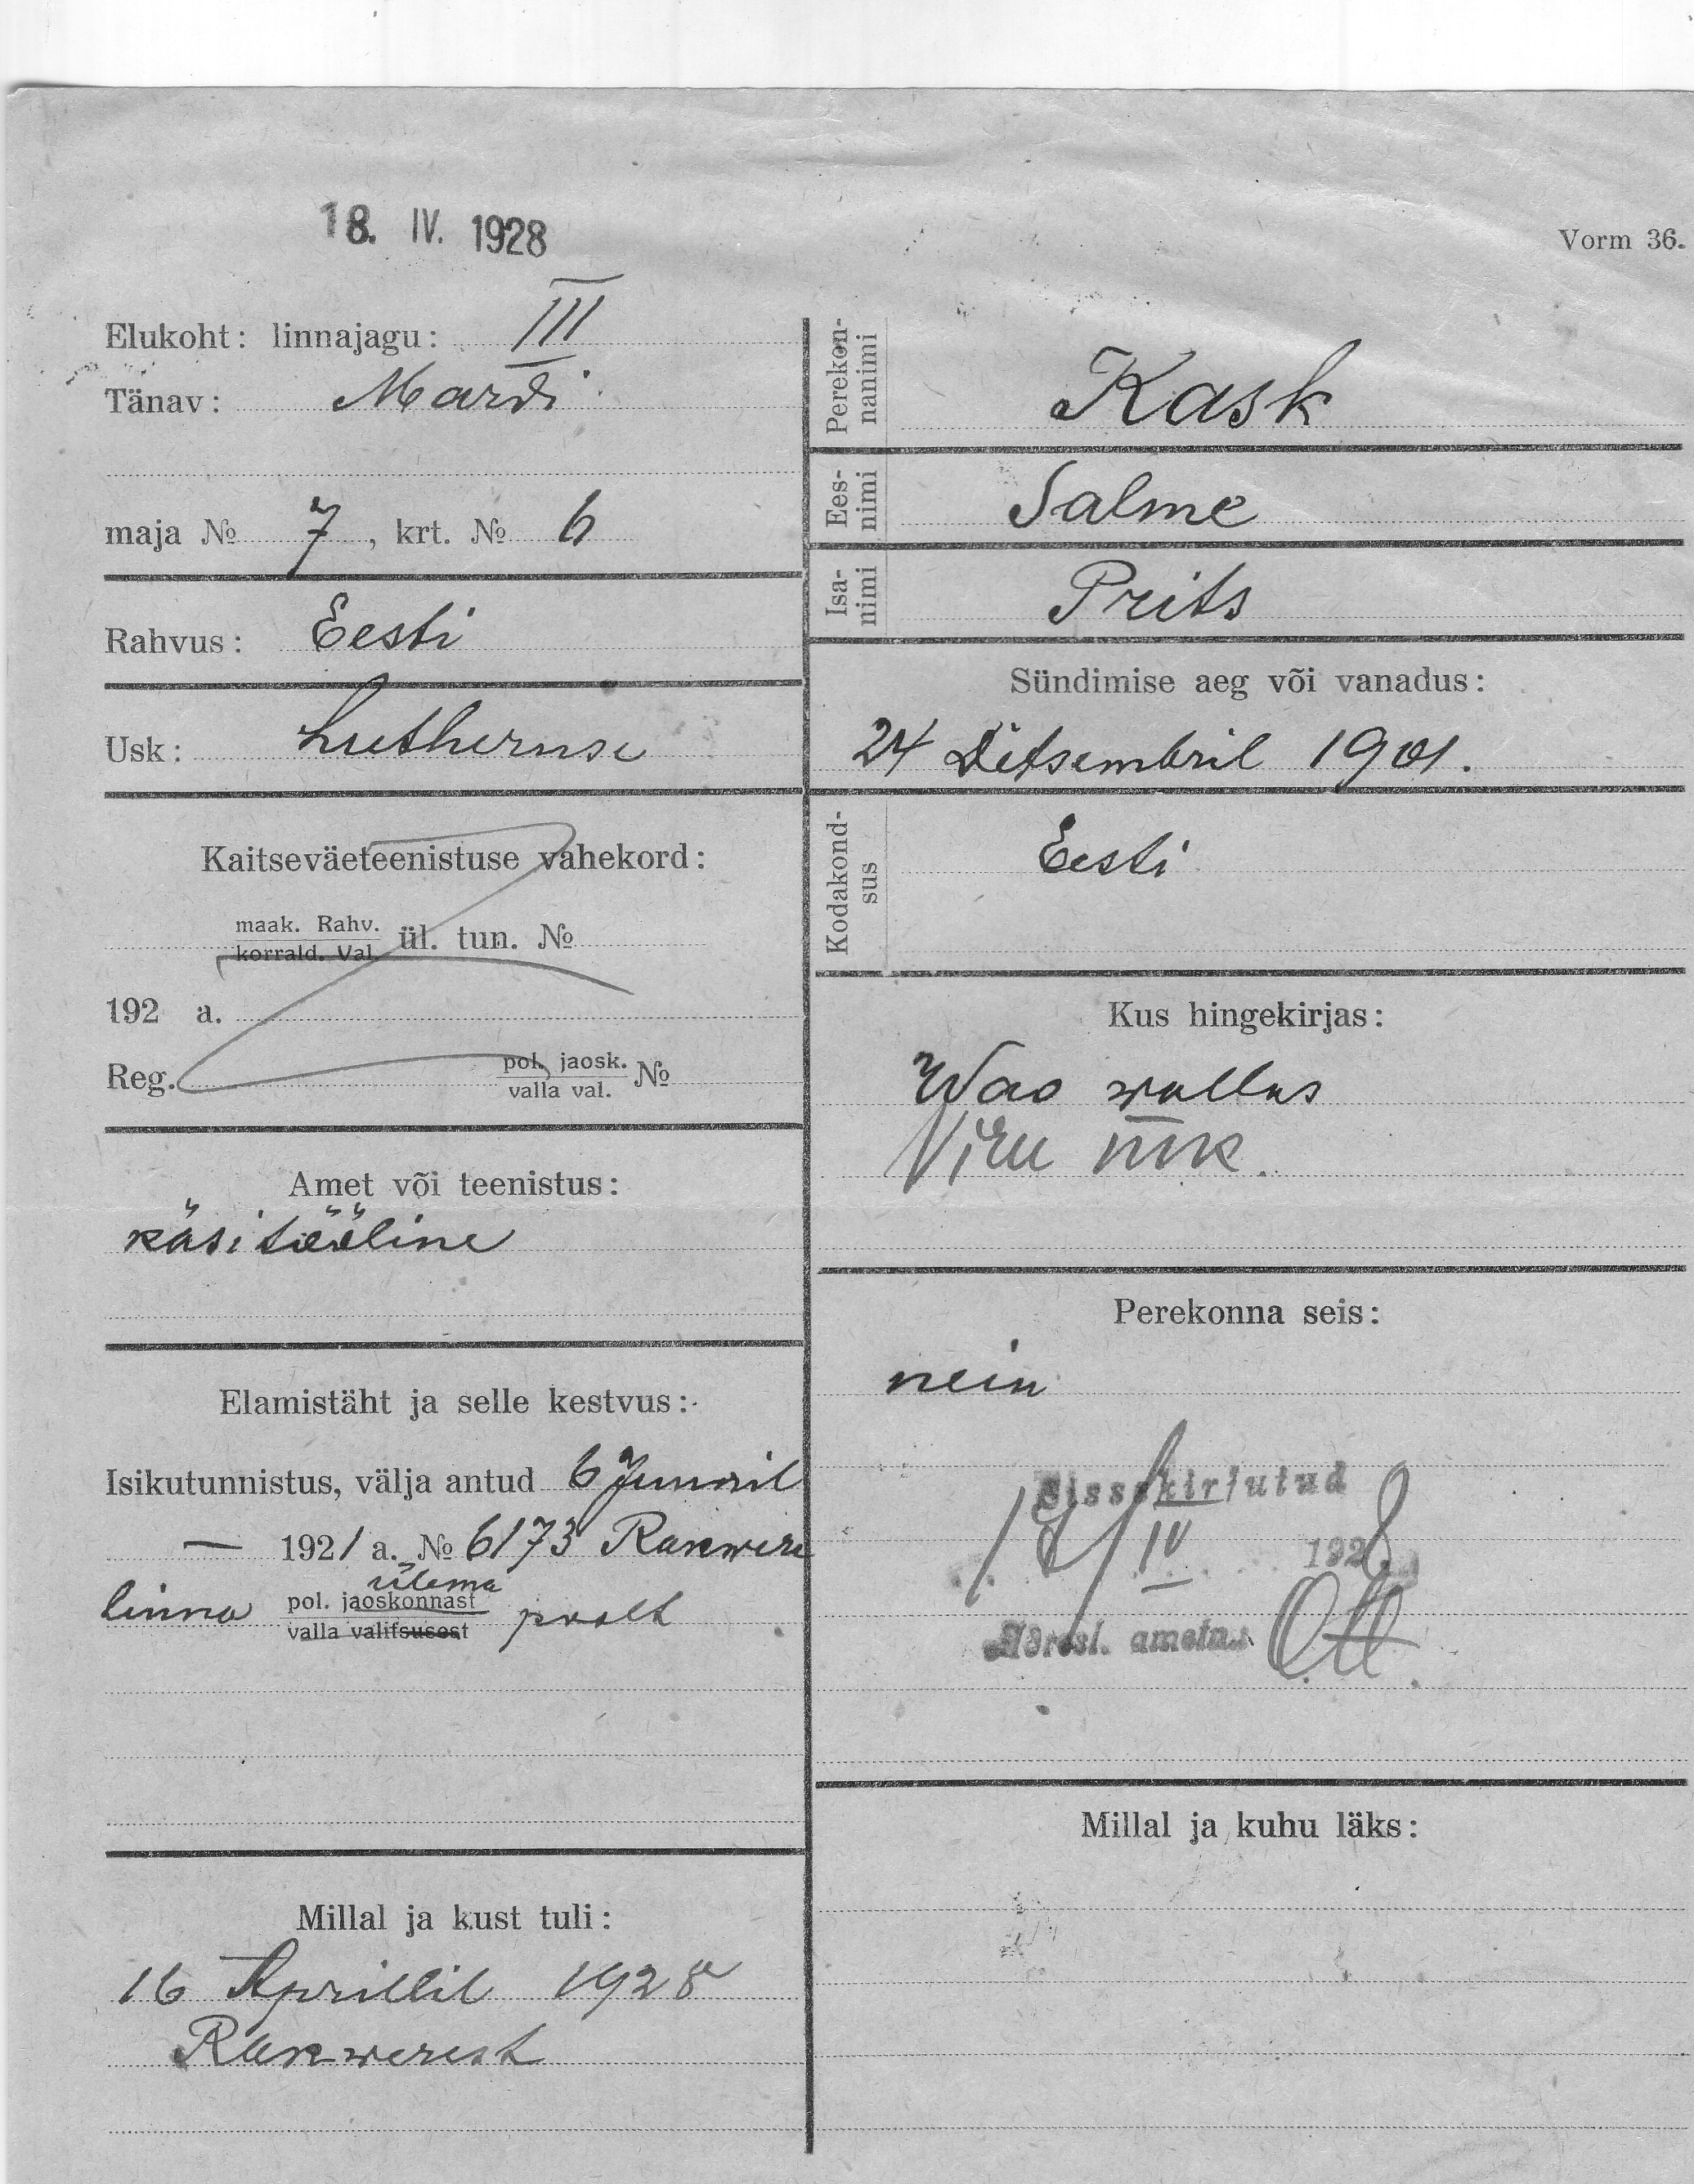 18. IV. 1928
Vorm 36.
Elukoht: linnajagu: III
Tänav: Mardi
maja № 7, krt. № 6
Rahvus: Eesti
Usk: Lutheruse
Kaitseväeteenistuse vahekord:
maak. Rahv.
korrald. Val. ül. tun. №
192 a.
Reg. pol. jaosk. №
valla val.
Amet või teenistus:
käsitööline
Elamistäht ja selle kestvus:
Isikutunnistus, välja antud 6 Juunil
— 1921 a. № 6173 Rakwere
ülema
linna pol. jaoskonnast poolt
valla valitsusest
Millal ja kust tuli:
16 Aprillil 1928
Rakwerest
Perekon-
nanimi Kask
Ees-
nimi Salme
Isa-
nimi Prits
Sündimise aeg või vanadus:
24 Detsembril 1901.
Kodakond-
sus Eesti
Kus hingekirjas:
Wao wallas
Viru mk.
Perekonna seis:
nein
Sissekirjutud
18/IV 1928.
Adressl. ametn. Ott
Millal ja kuhu läks: